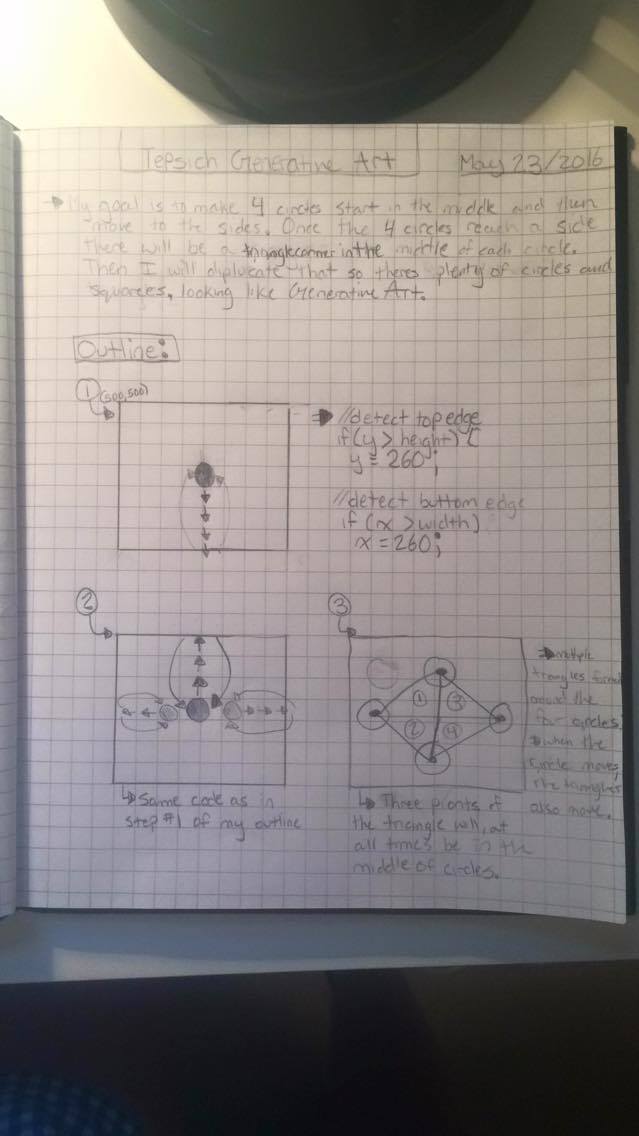 Tepsich Generative Art
May 23/2016
My goal is to make 4 circles start in the middle and then
move to the sides. Once the 4 circles reach a side
there will be a triangle corner in the middle of each circle.
Then I will duplicate that so theres plenty of circles and
squares, looking like Generative Art.
Outline:
1
(500,500)
//detect top edge
if(y > height) {
y = 260;
//detect buttom edge
if (x > width)
x = 260;
2
Same code as in
step #1 of my outline
3
1 3
2 4
Three pionts of
the triangle will, at
all times be in the
middle of circles.
multiple
triangles formed
around the
four circles,
when the
circle moves,
the triangles
also move.